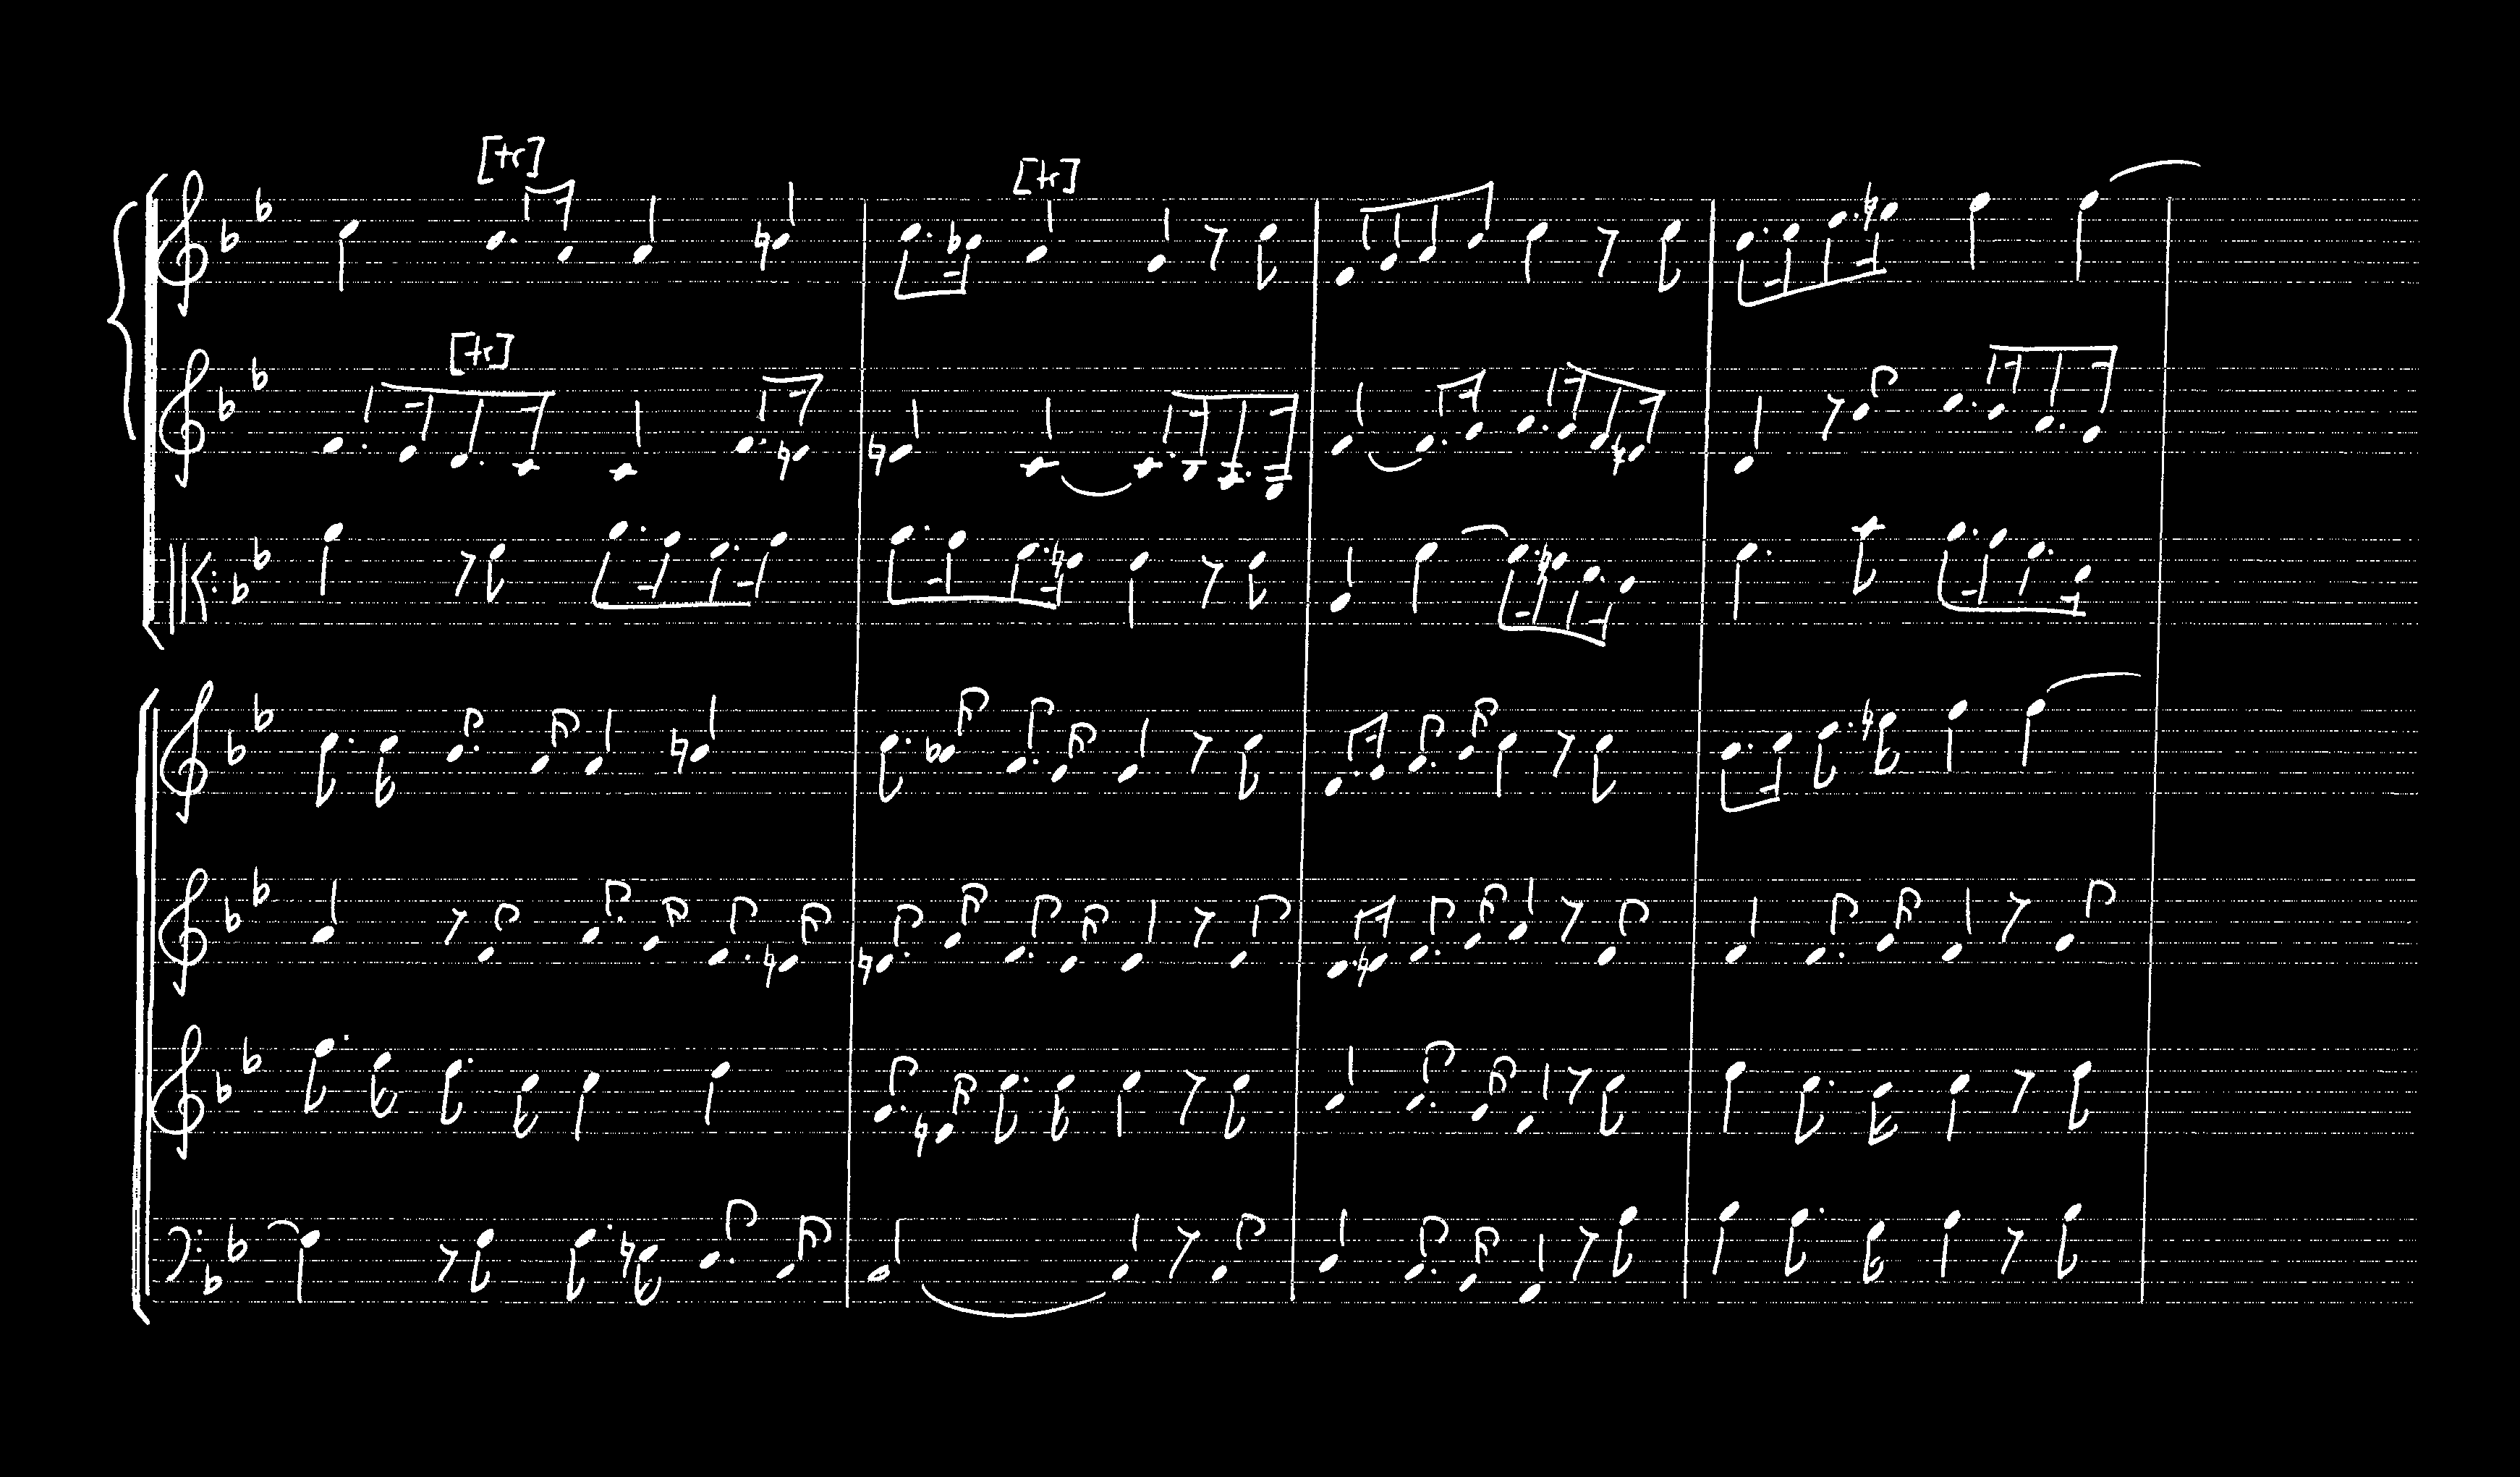 [tr]
[tr]
[tr]